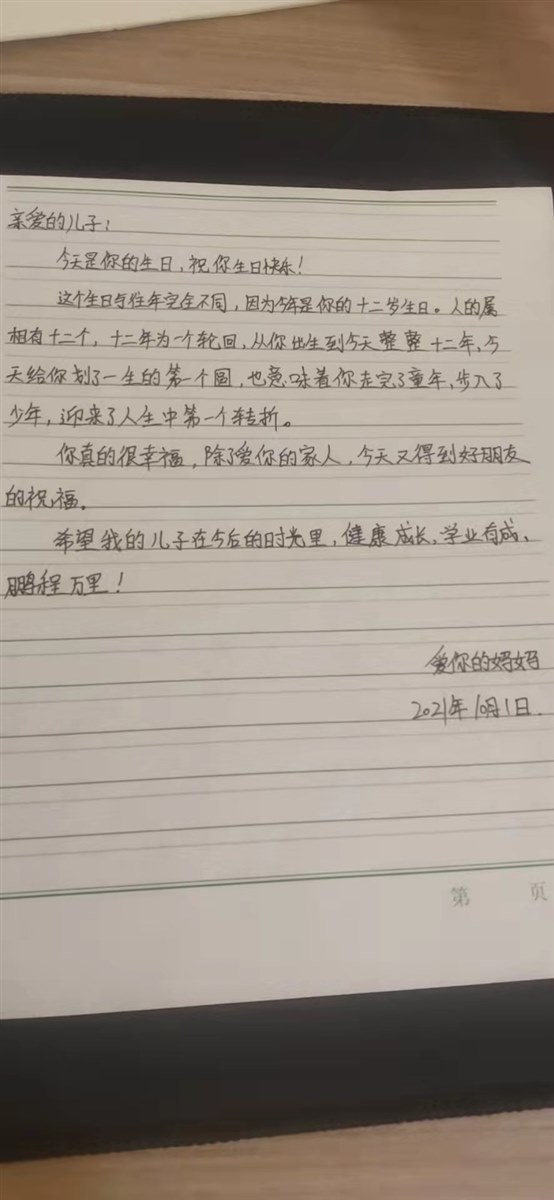 亲爱的儿子：
今天是你的生日，祝你生日快乐！
这个生日与往年完全不同，因为今年是你的十二岁生日。人的属
相有十二个，十二年为一个轮回，从你出生到今天整整十二年，今
天给你划了一生的第一个圆，也意味着你走完了童年，步入了
少年，迎来了人生中第一个转折。
你真的很幸福，除了爱你的家人，今天又得到好朋友
的祝福。
希望我的儿子在今后的时光里，健康成长，学业有成，
鹏程万里！
爱你的妈妈
2021年10月1日.
第 页